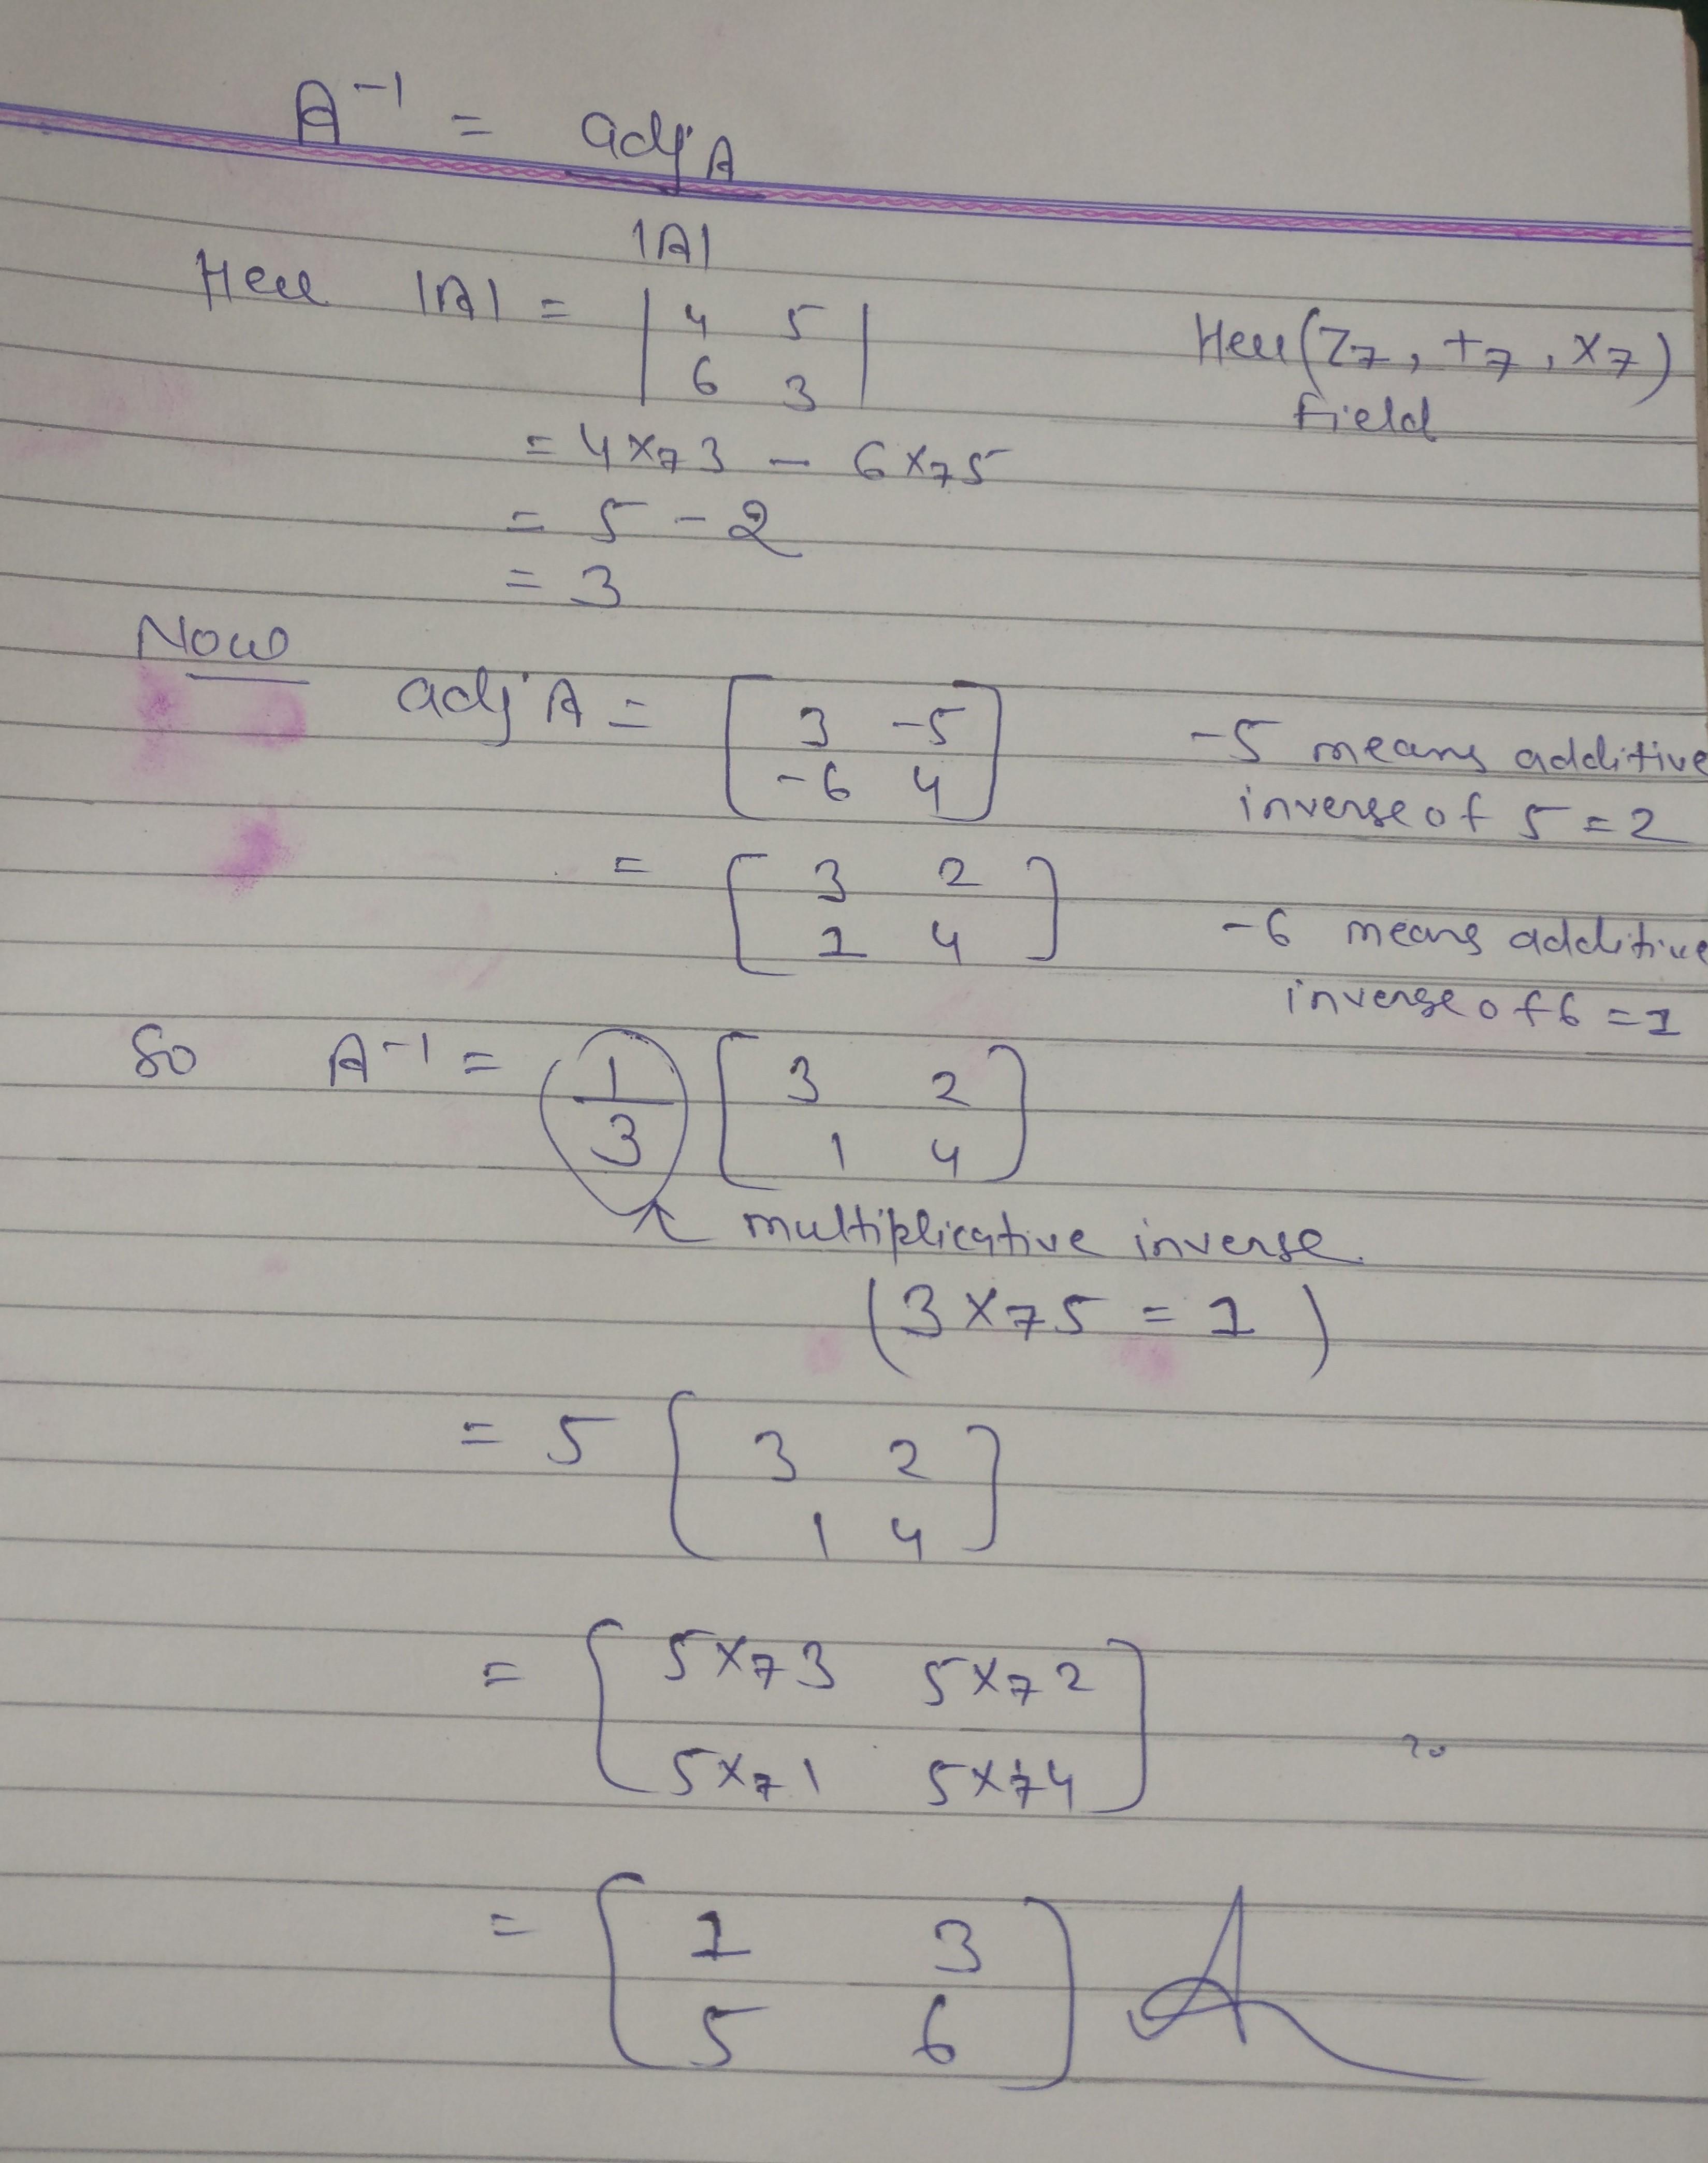 A⁻¹ = adj A
|A|
Here |A| = | 4 5 |
| 6 3 |
Here (Z₇, +₇, ×₇)
field
= 4 ×₇ 3 - 6 ×₇ 5
= 5 - 2
= 3
Now
adj A = [ 3 -5
-6 4 ]
-5 means additive
inverse of 5 = 2
= [ 3 2
1 4 ]
-6 means additive
inverse of 6 = 1
So A⁻¹ = 1/3 [ 3 2
1 4 ]
multiplicative inverse.
(3 ×₇ 5 = 1)
= 5 [ 3 2
1 4 ]
= [ 5×₇3 5×₇2
5×₇1 5×₇4 ]
20
= [ 1 3
5 6 ]